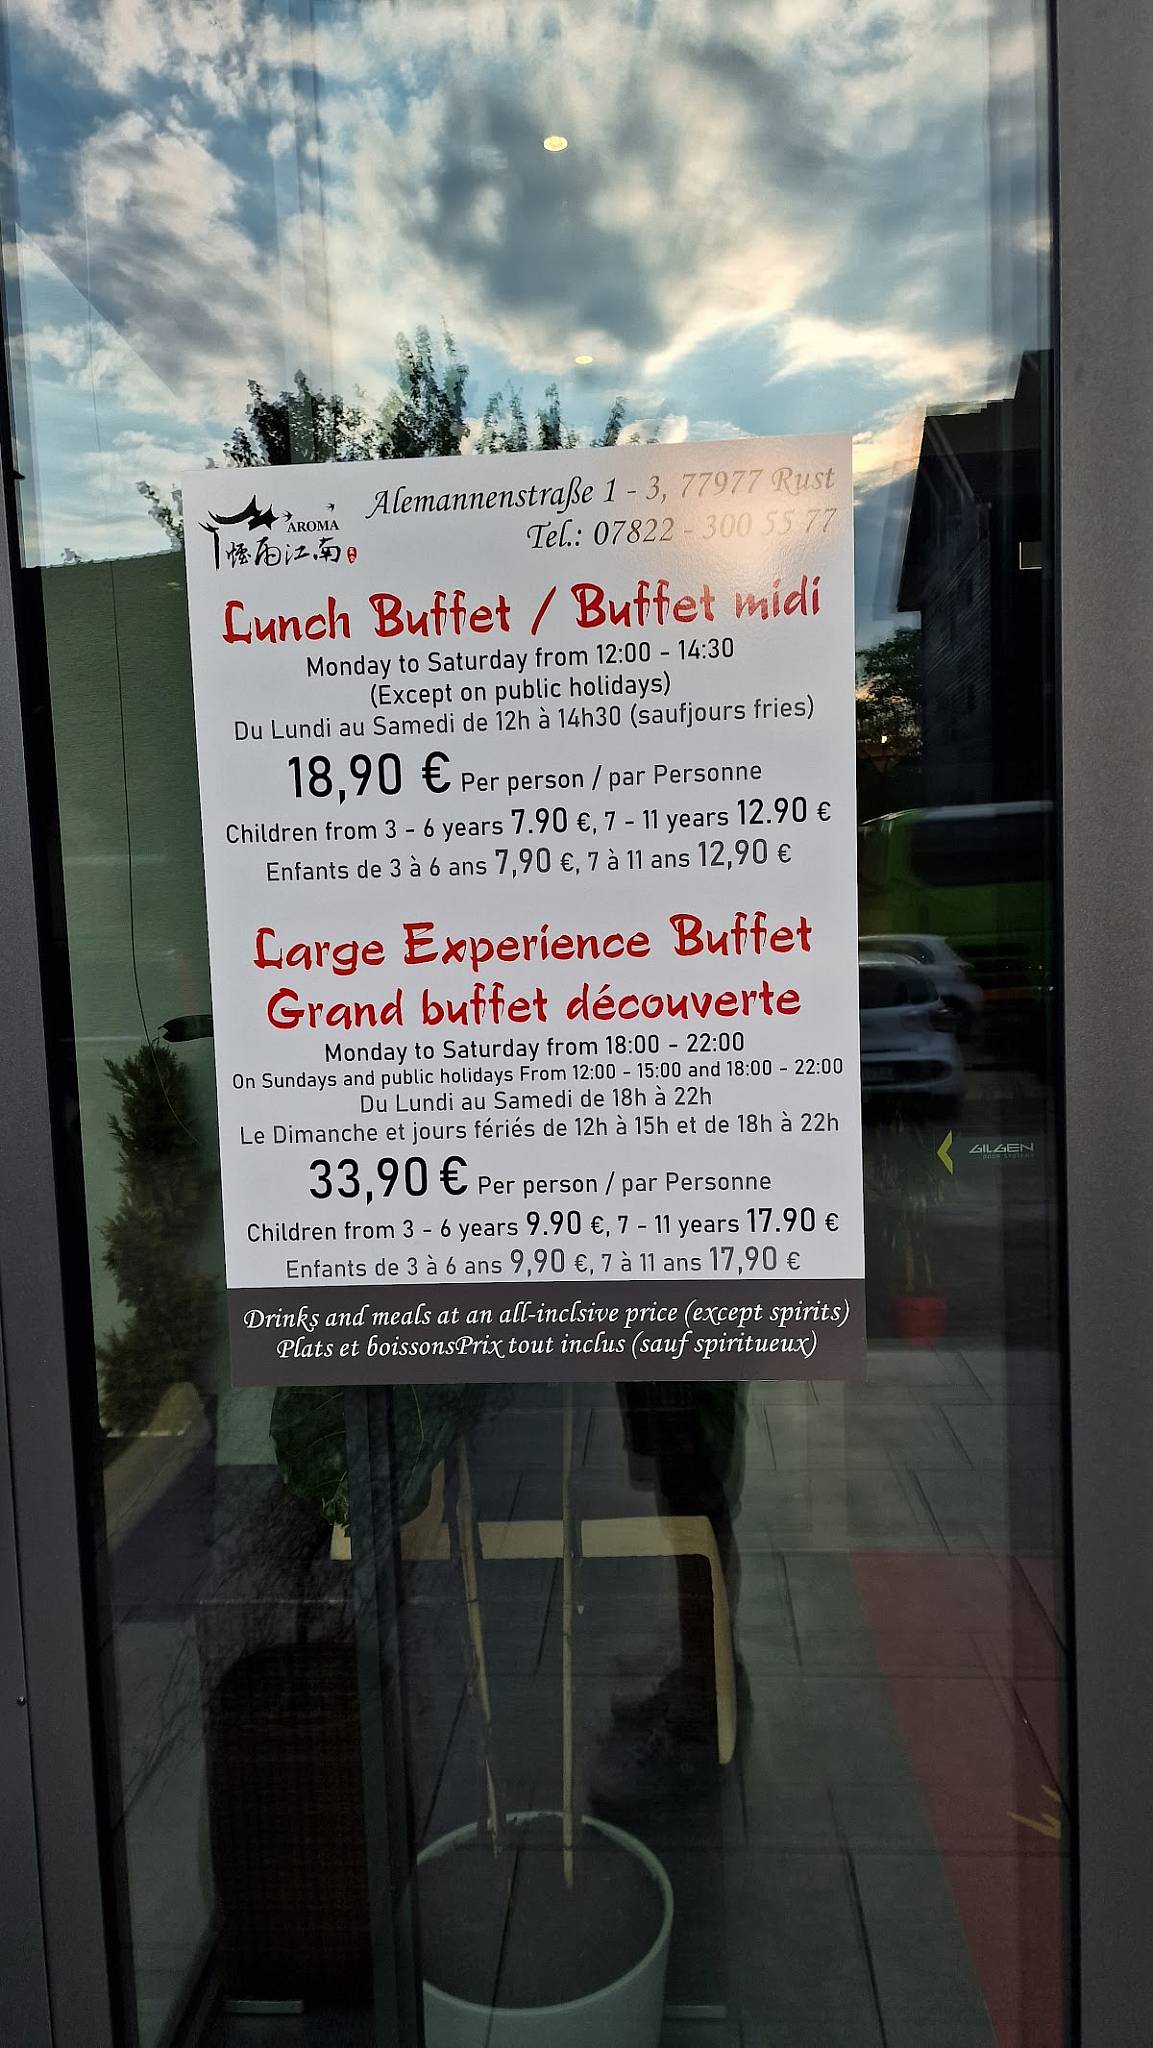 AROMA
烟雨江南
Alemannenstraße 1 - 3, 77977 Rust
Tel.: 07822 - 300 55 77
Lunch Buffet / Buffet midi
Monday to Saturday from 12:00 - 14:30
(Except on public holidays)
Du Lundi au Samedi de 12h à 14h30 (saufjours fries)
18,90 € Per person / par Personne
Children from 3 - 6 years 7.90 €, 7 - 11 years 12.90 €
Enfants de 3 à 6 ans 7,90 €, 7 à 11 ans 12,90 €
Large Experience Buffet
Grand buffet découverte
Monday to Saturday from 18:00 - 22:00
On Sundays and public holidays From 12:00 - 15:00 and 18:00 - 22:00
Du Lundi au Samedi de 18h à 22h
Le Dimanche et jours fériés de 12h à 15h et de 18h à 22h
33,90 € Per person / par Personne
Children from 3 - 6 years 9.90 €, 7 - 11 years 17.90 €
Enfants de 3 à 6 ans 9,90 €, 7 à 11 ans 17,90 €
Drinks and meals at an all-inclsive price (except spirits)
Plats et boissonsPrix tout inclus (sauf spiritueux)
GILGEN
DOOR SYSTEMS